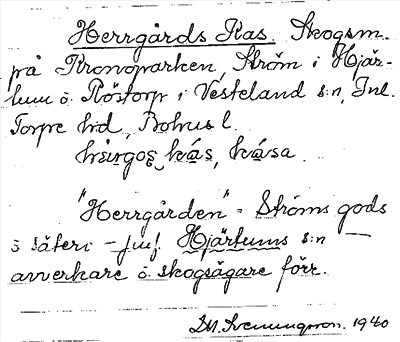 Herrgårds Kas. Skogsm.
på Kronoparken, Ström i Hjär-
tum o. Röstorp i Vesteland s:n, Inl.
Torpe hd, Bohus l.
kas, kása.
"Herrgården" = Ströms gods
o säteri - jmf. Hjärtums s:n —
avverkare o. skogsägare förr.
D.M. Svenungsson. 1940